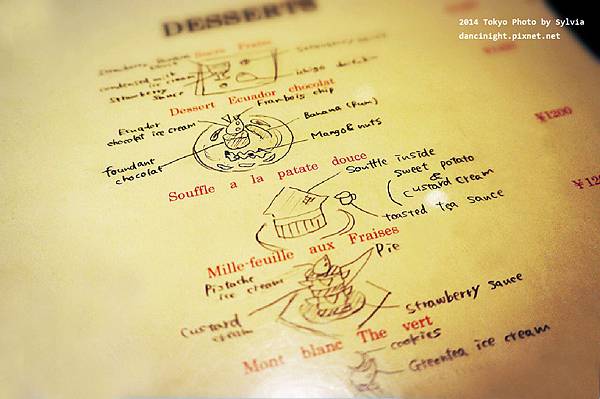 2014 Tokyo Photo by Sylvia
dancinight.pixnet.net
DESSERTS
Strawberry
condensed milk
Strawberry
Sauce
Dessert Ecuador chocolat
Ecuador
chocolat ice cream
Frambois chip
Banana (Rum)
Mango & nuts
foundant
chocolat
¥1200
Souffle a la patate douce
Souffle inside
(sweet potato
&
custard cream
toasted tea sauce
Mille-feuille aux Fraises
Pistache
ice cream
Pie
Custard
cream
Strawberry sauce
Mont blanc The vert
cookies
Greentea ice cream